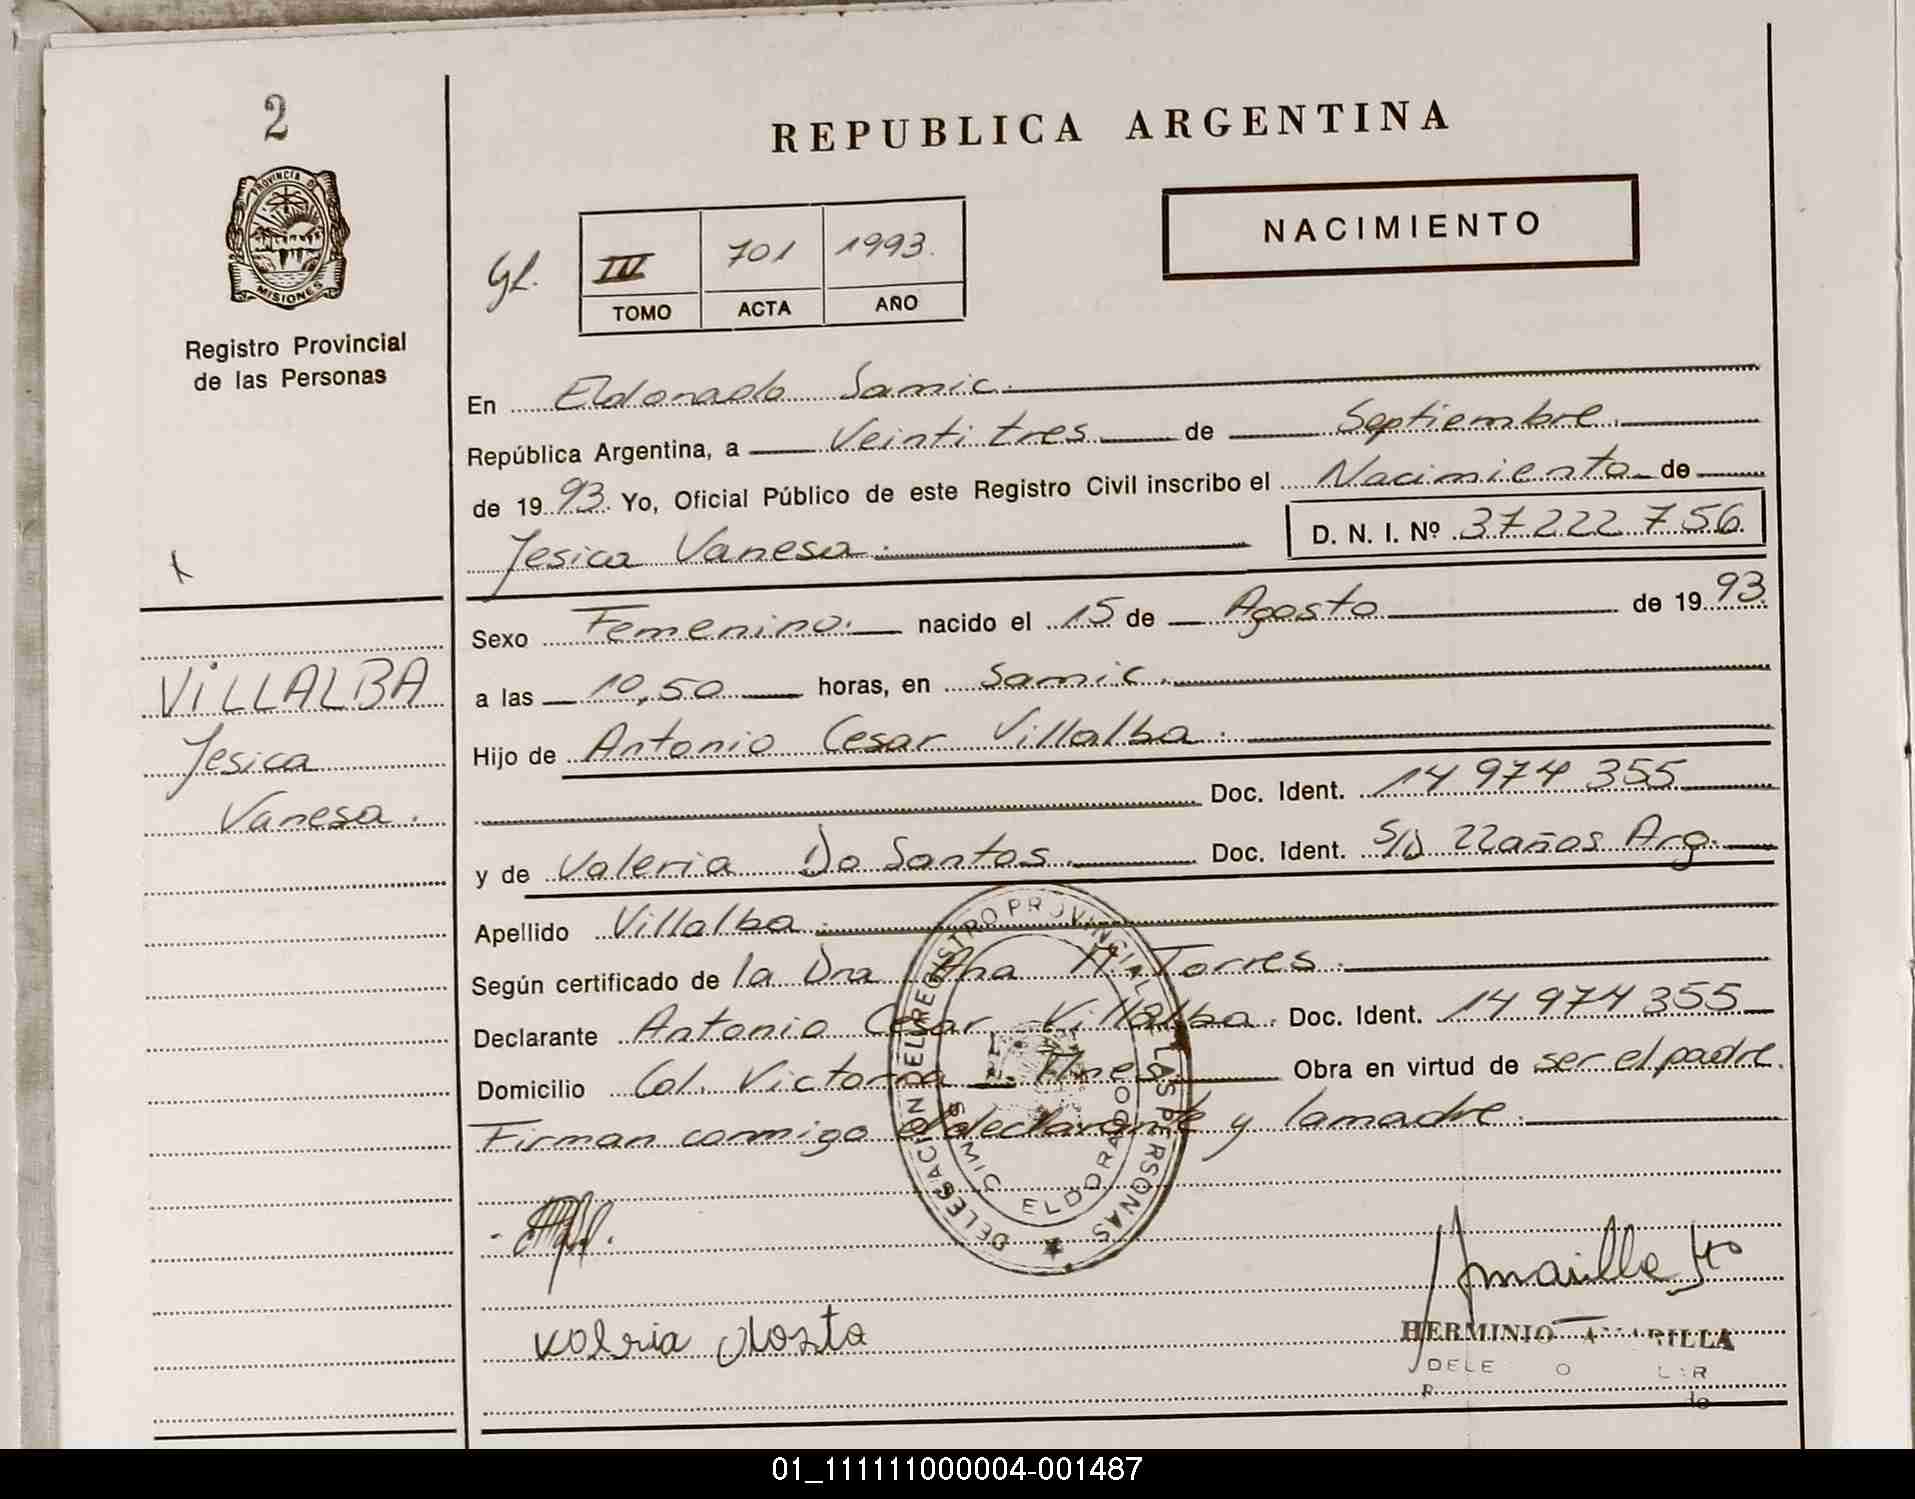 2
PROVINCIA DE
MISIONES
Registro Provincial
de las Personas
REPUBLICA ARGENTINA
NACIMIENTO
III 701 1993.
TOMO ACTA AÑO
En Eldorado Samic.
República Argentina, a Veintitres de Septiembre.
de 1993. Yo, Oficial Público de este Registro Civil inscribo el Nacimiento de
Jesica Vanesa. D. N. I. Nº 37.222.756.
Sexo Femenino. nacido el 15 de Agosto de 1993.
a las 10,50 horas, en Samic.
Hijo de Antonio Cesar Villalba.
Doc. Ident. 14 974 355
y de Valeria Do Santos. Doc. Ident. S/D 22 años Arg.
Apellido Villalba.
Según certificado de la Dra Ana M. Torres.
Declarante Antonio Cesar Villalba. Doc. Ident. 14 974 355
Domicilio Col. Victoria Obra en virtud de ser el padre.
Firman conmigo el declarante y la madre.
VILLALBA
Jesica
Vanesa.
DELEGACION DEL REGISTRO PROVINCIAL DE LAS PERSONAS
SAMIC ELDORADO
HERMINIO AMARILLA
01_111111000004-001487